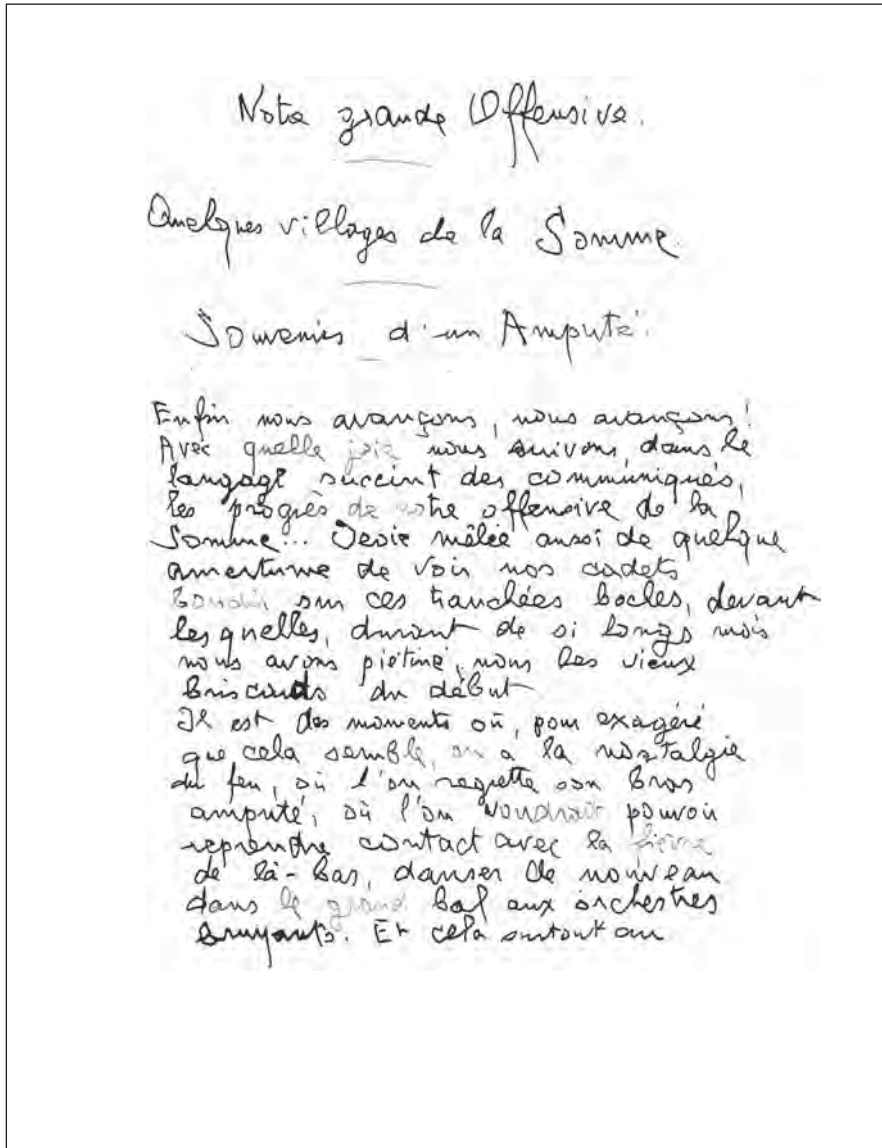 Notre grande Offensive.
Quelques villages de la Somme.
Souvenirs d'un Amputé.
Enfin nous avançons, nous avançons!
Avec quelle joie nous suivons, dans le
langage succint des communiqués,
les progrès de notre offensive de la
Somme... Joie mêlée aussi de quelque
amertume de voir nos cadets
bondir sur ces tranchées boches, devant
lesquelles, durant de si longs mois
nous avons piétiné, nous les vieux
briscards du début
Il est des moments où, pour exagéré
que cela semble, on a la nostalgie
du feu, où l'on regrette son bras
amputé, où l'on voudrait pouvoir
reprendre contact avec la fièvre
de là-bas, danser de nouveau
dans le grand bal aux orchestres
bruyants. Et cela surtout au